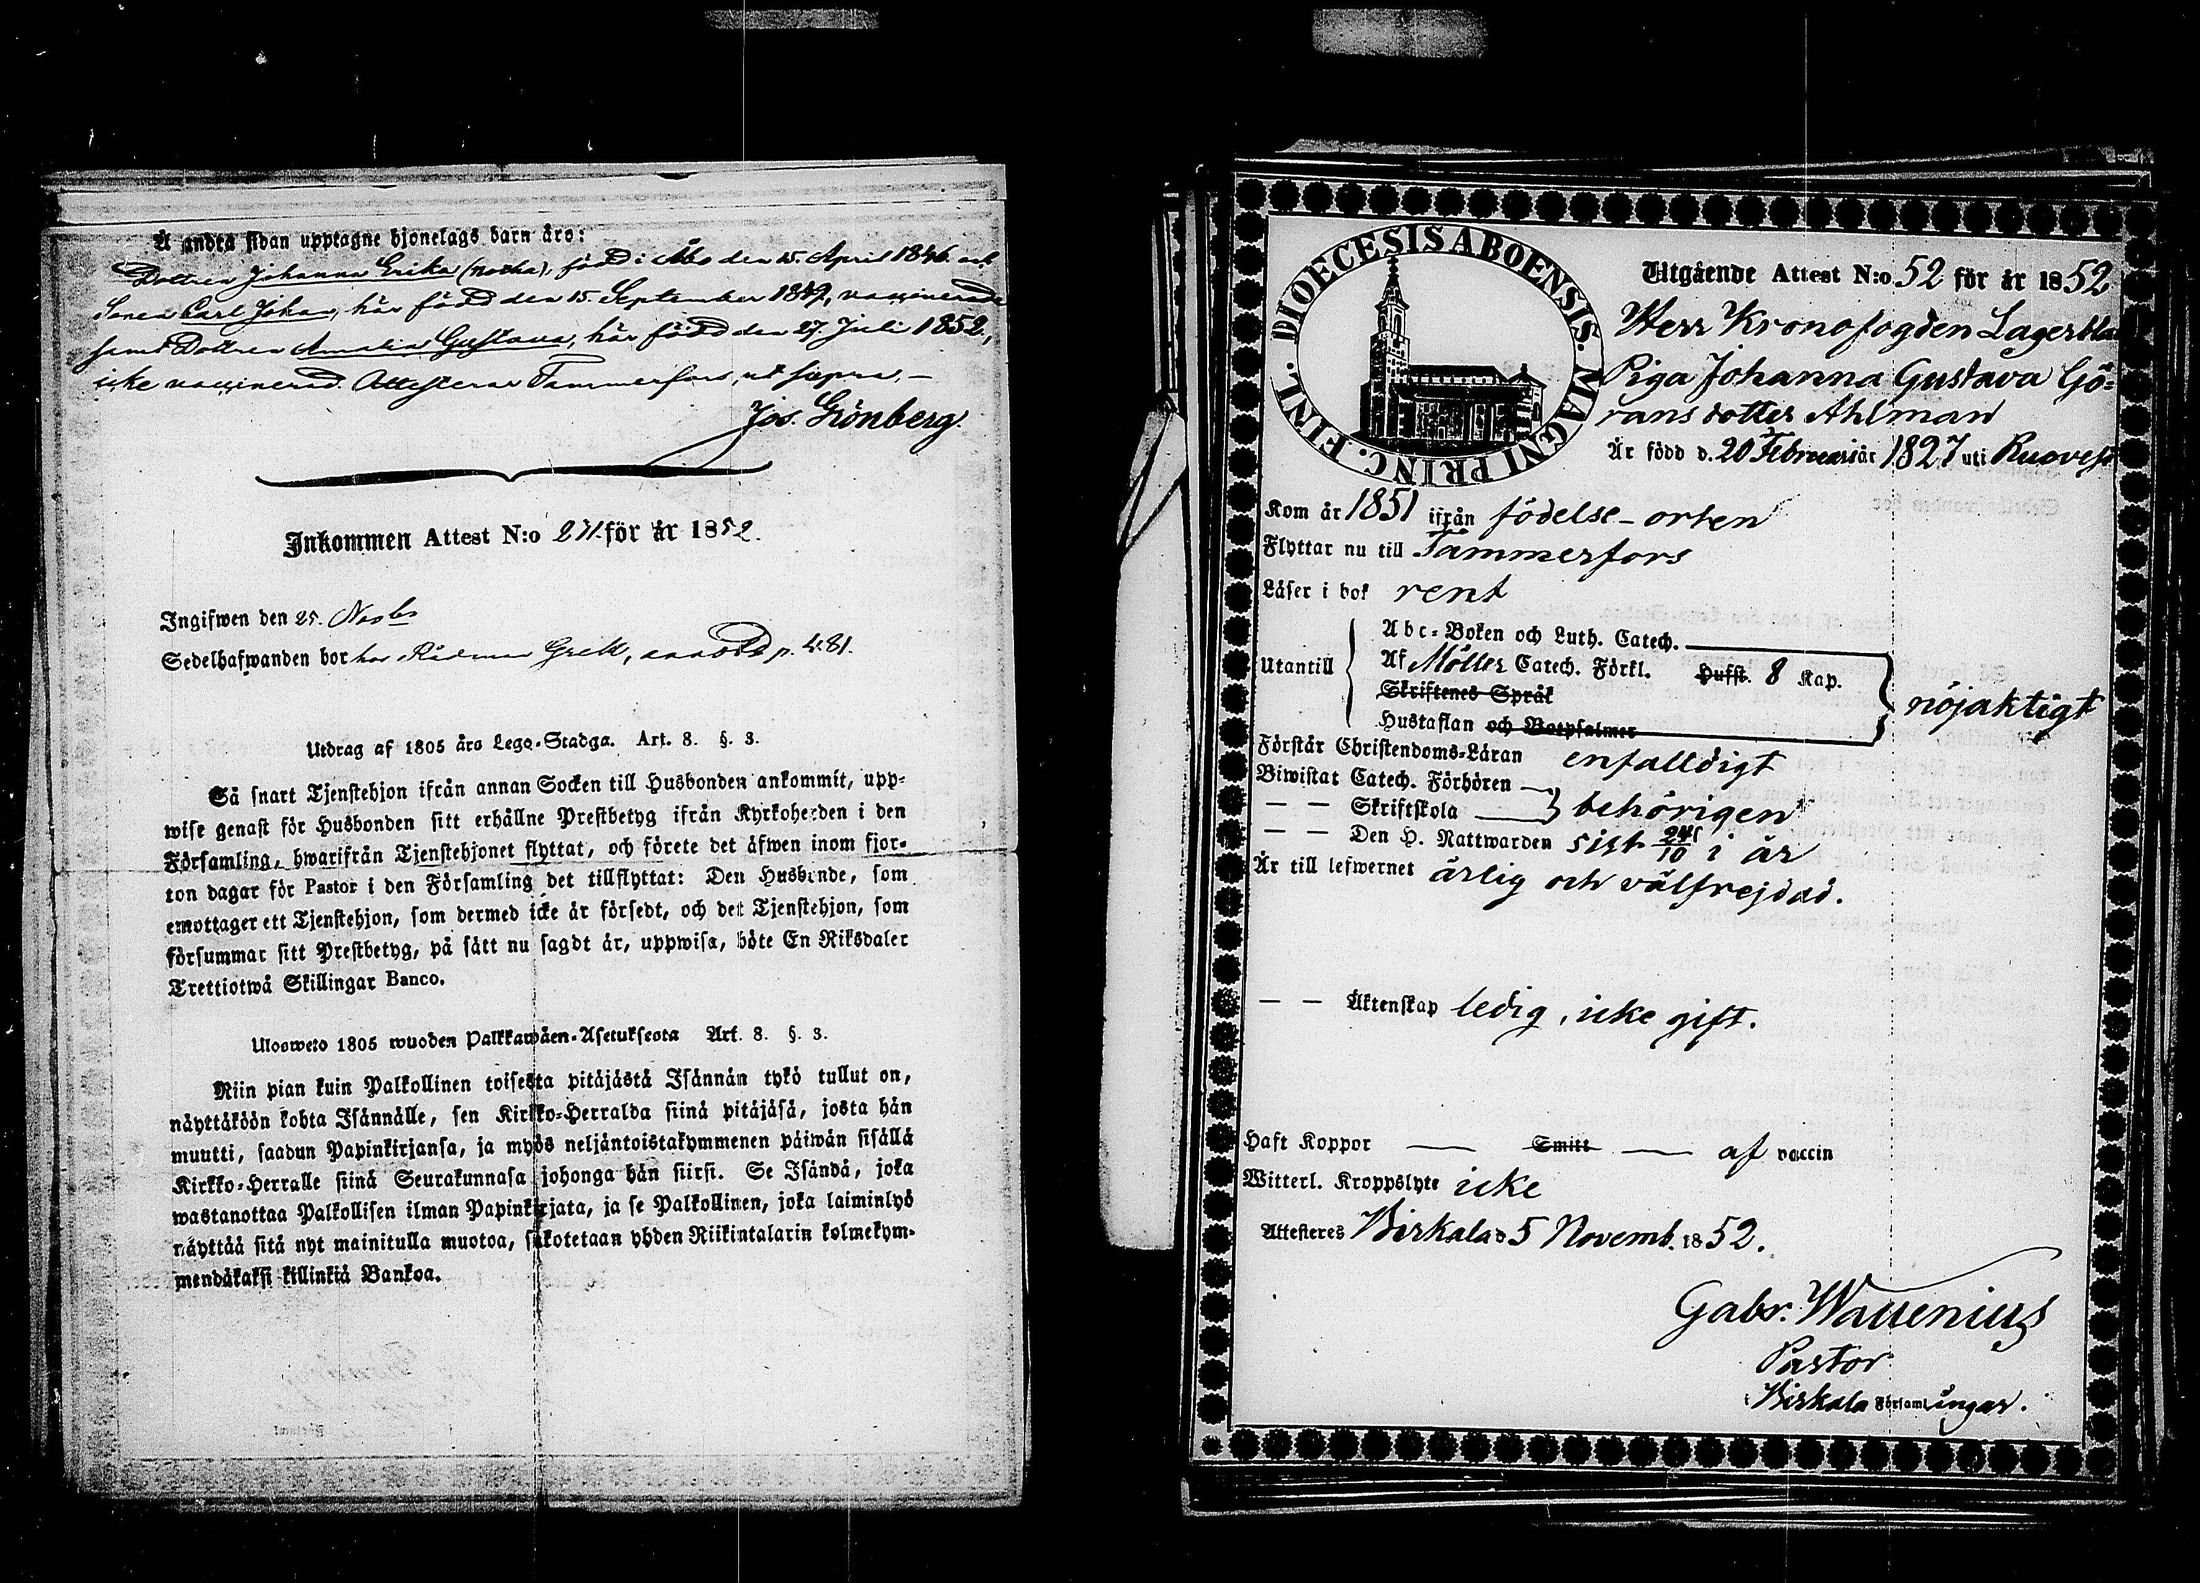 Å andra sidan upptagne hjonelags barn äro:
Dottren Johanna Erika (Notha), född i Åbo den 15. April 1846. och
Sonen Carl Johan, här född den 15. September 1849, vaccinerade
samt Dottren Amalia Gustava, här född den 27. Juli 1852,
icke vaccinerad. Attesterar Tammerfors, ut supra. –
Jos. Grönberg.
Inkommen Attest N:o 271. för år 1852.
Ingifwen den 25. Novbr
Sedelhafwanden bor hos Rådman Grell, p. 481.
Utdrag af 1805 års Lego-Stadga. Art. 8. §. 3.
Så snart Tjenstehjon ifrån annan Socken till Husbonden ankommit, upp-
wise genast för Husbonden sitt erhållne Prestbetyg ifrån Kyrkoherden i den
Församling, hwarifrån Tjenstehjonet flyttat, och förete det äfwen inom fjor-
ton dagar för Pastor i den Församling det tillflyttat: Den Husbonde, som
emottager ett Tjenstehjon, som dermed icke är försedt, och det Tjenstehjon, som
försummar sitt Prestbetyg, på sätt nu sagdt är, uppwisa, böte En Riksdaler
Trettiotwå Skillingar Banco.
Ulosweto 1805 wuoden Palkkawäen-Asetuksesta Art. 8. §. 3.
Niin pian kuin Palkollinen toisesta pitäjästä Isännän tykö tullut on,
näyttäköön kohta Isännälle, sen Kirkko-Herralda siinä pitäjäsä, josta hän
muutti, saadun Papinkirjansa, ja myös neljäntoistakymmenen päiwän sisällä
Kirkko-Herralle siinä Seurakunnasa johonga hän siirsi. Se Isändä, joka
wastanottaa Palkollisen ilman Papinkirjata, ja se Palkollinen, joka laiminlyö
näyttää sitä nyt mainitulla muotoa, sakotetaan yhden Riikintalarin kolmekym-
mendäkaksi killinkiä Bankoa.
DIOECESIS ABOENSIS. MAGNI PRINC. FINL.
Utgående Attest N:o 52 för år 1852
Herr Kronofogden Lagerbla
Piga Johanna Gustava Gö-
ransdotter Ahlman
Är född d. 20 Februari år 1827 uti Ruovesi
Kom år 1851 ifrån födelse-orten
Flyttar nu till Tammerfors
Läser i bok rent
Utantill
Abc-Boken och Luth. Catech.
Af Möller Catech. Förkl. Hufst. 8 Kap.
Skriftenes Språk
Hustaflan och Botpsalmer
nöjaktigt
Förstår Christendoms-Läran enfalldigt
Biwistat Catech. Förhören
— — Skriftskola behörigen
— — Den H. Nattwarden sist 24/10 i år
Är till lefwernet ärlig och välfrejdad.
— — Äktenskap ledig, icke gift.
Haft Koppor — Smitt — af vaccin
Witterl. Kroppslyte icke
Attesteres Birkala d 5 Novemb. 1852.
Gabr. Wallenius
Pastor
Birkala Församlingar.